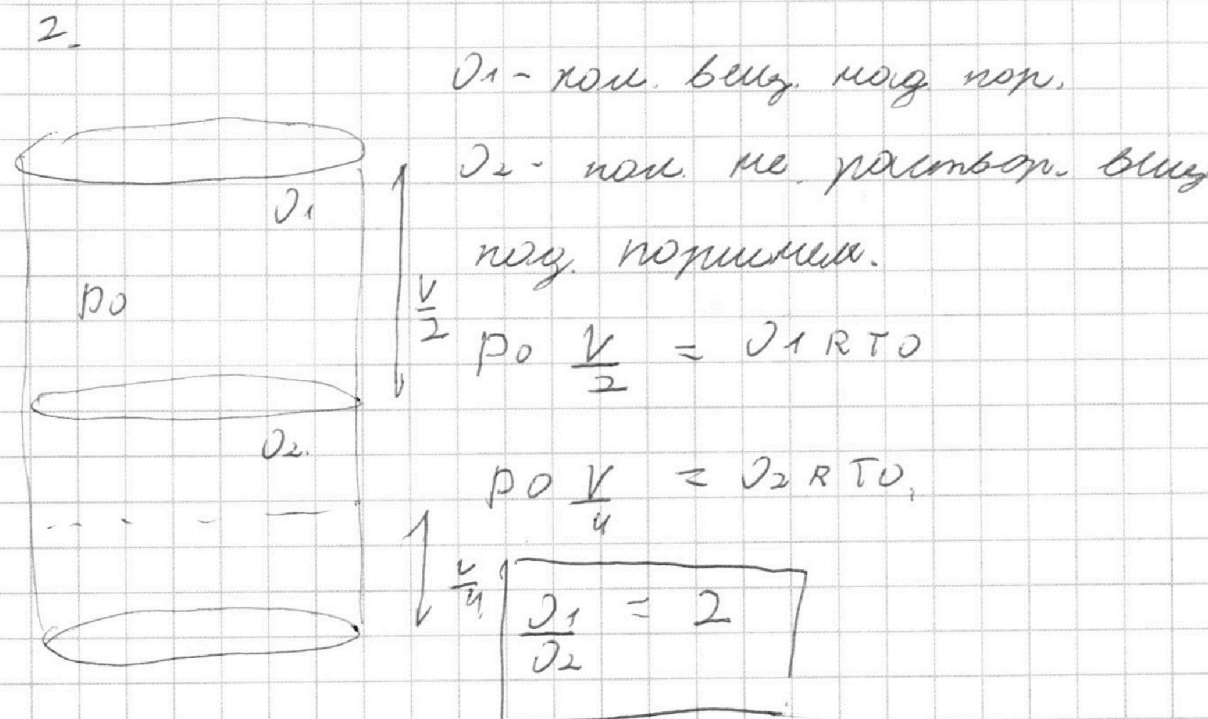 2.
ν1 - кол. вещ. над пор.
ν2 - кол. не раствор. вещ
под поршнем.
ν1
p0
V/2
p0 V/2 = ν1 R T0
ν2.
p0 V/4 = ν2 R T0,
V/4
ν1/ν2 = 2